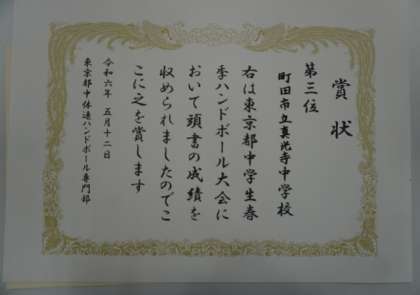 賞状
第三位
町田市立真光寺中学校
右は東京都中学生春
季ハンドボール大会に
おいて頭書の成績を
収められましたのでこ
こに之を賞します
令和六年 五月十二日
東京都中体連ハンドボール専門部